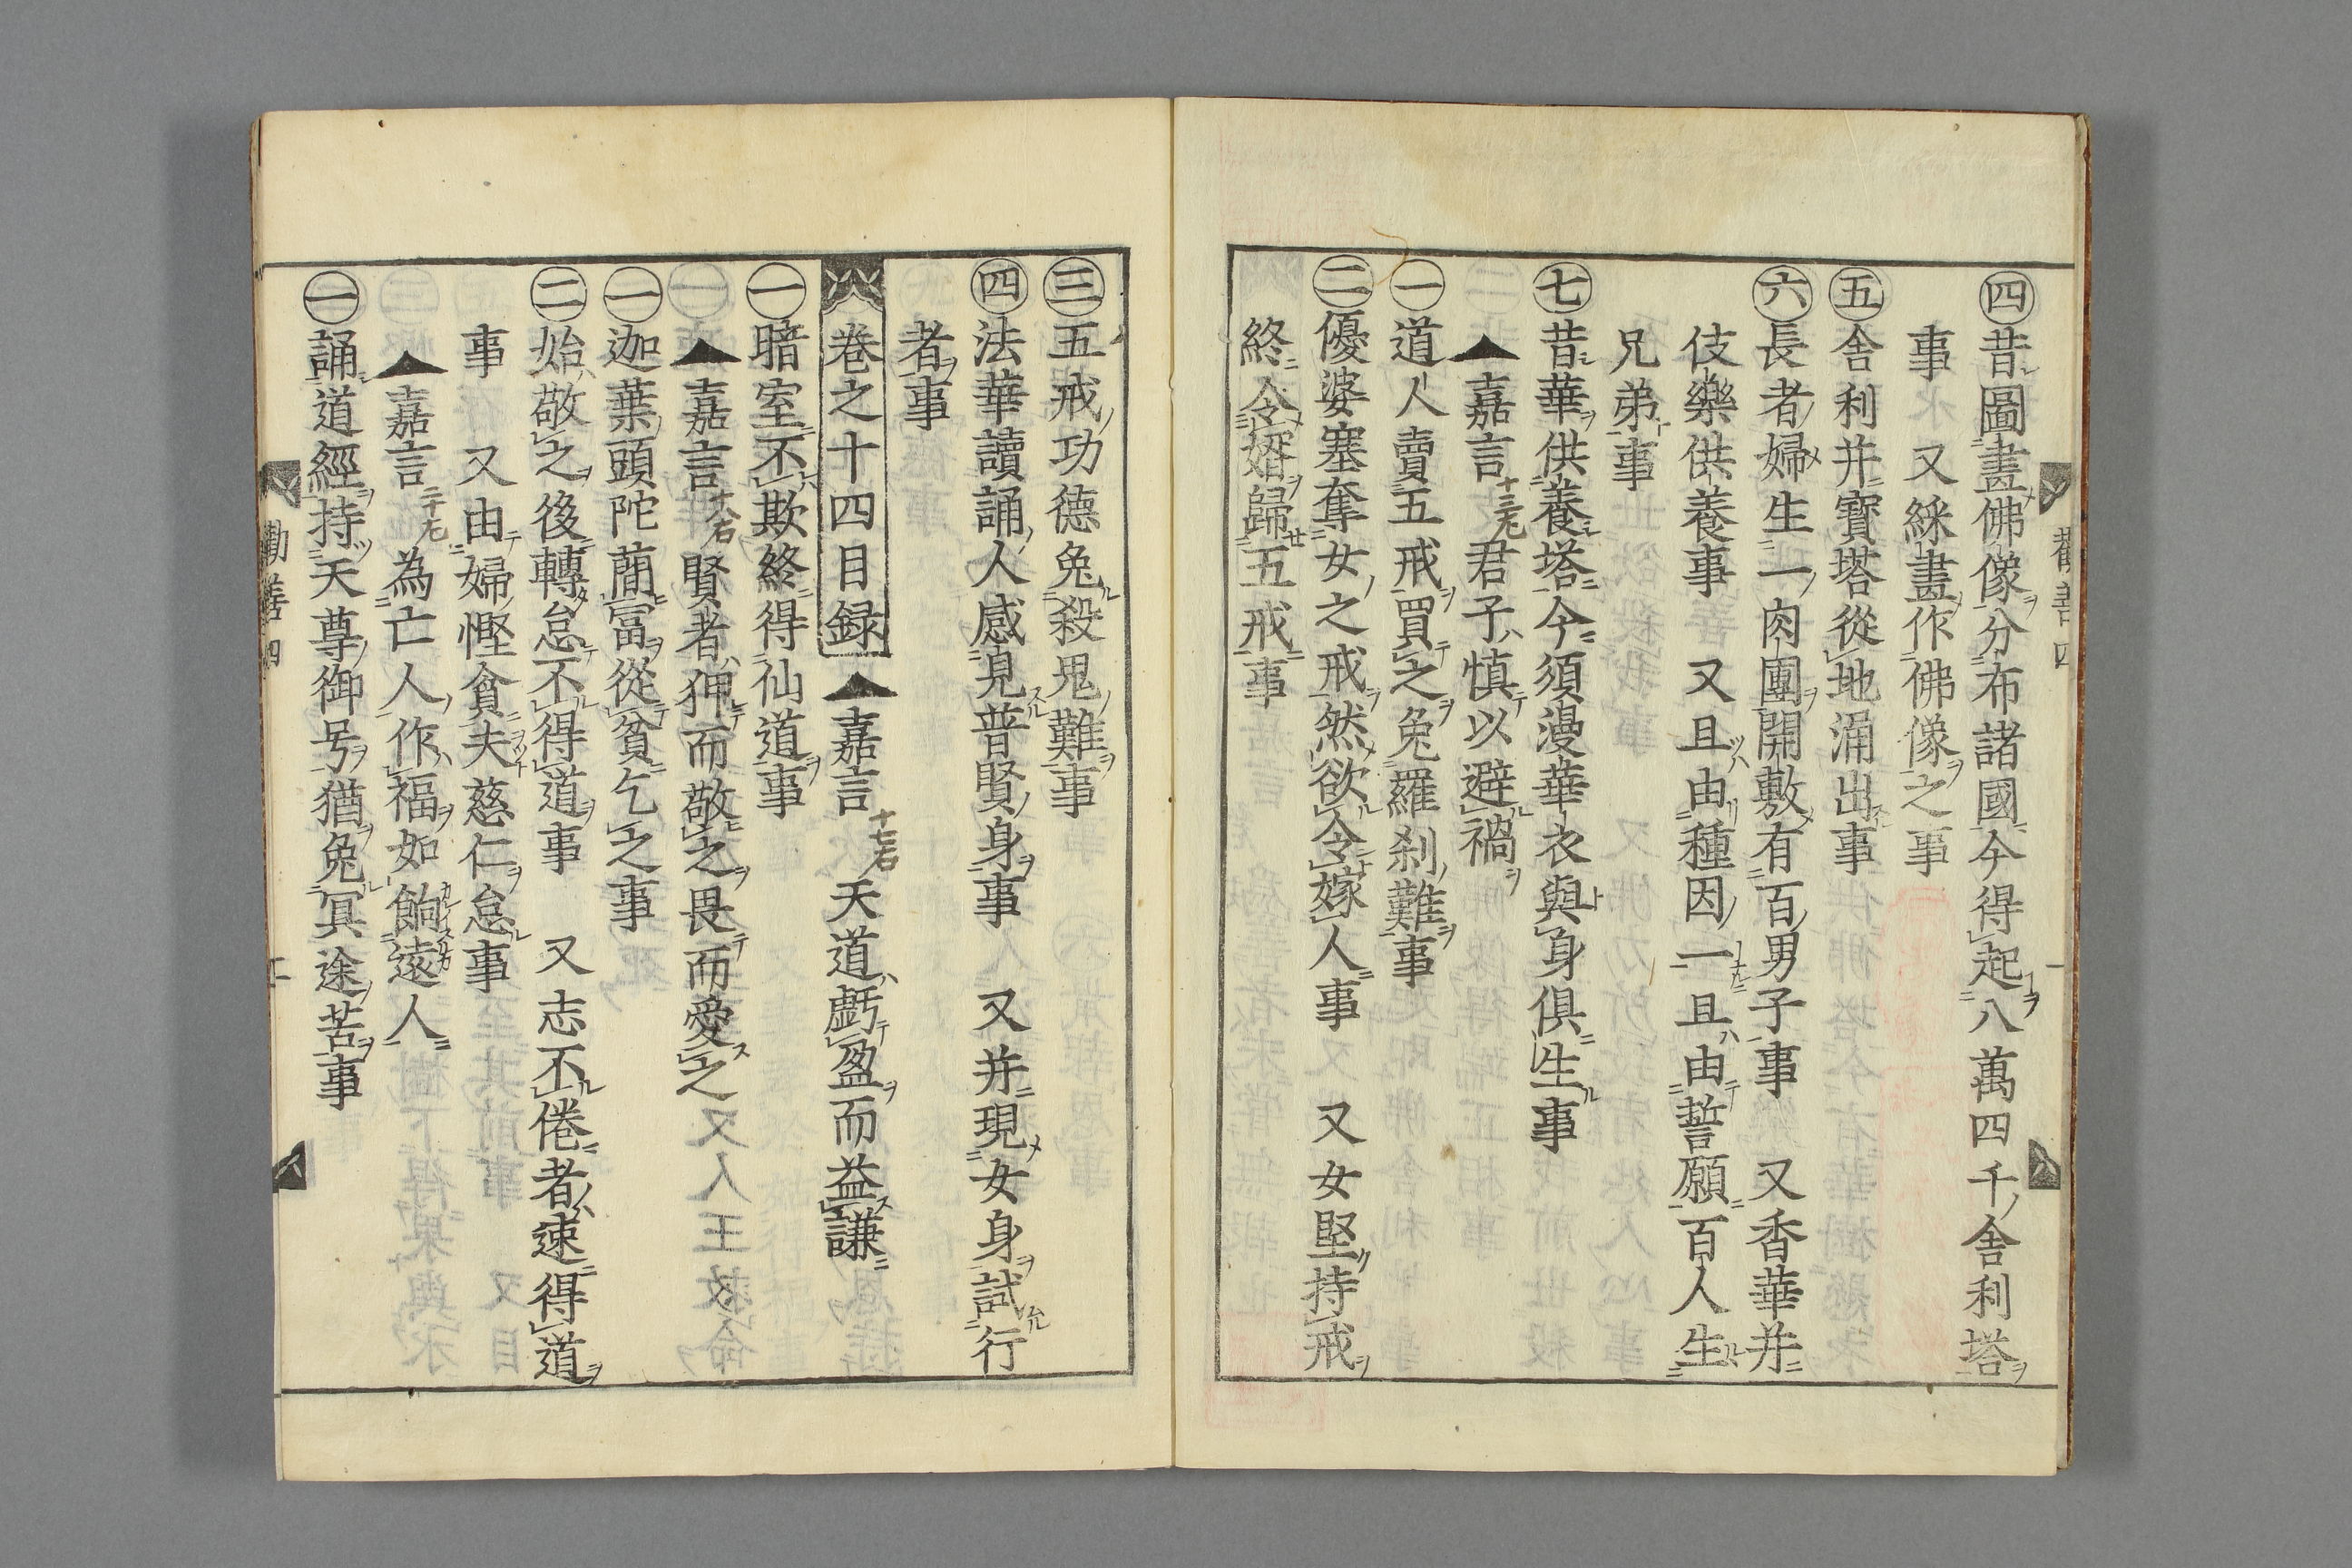 ㊃昔圖畫佛像分布諸國今得起八萬四千舍利塔
事　又綵畫作佛像之事
㊄舍利并寶塔從地涌出事
㊅長者婦生一肉團開敷有百男子事　又香華并
伎樂供養事　又且由種因一且由誓願百人生
兄弟事
㊆昔華供養塔今須漫華衣與身俱生事
嘉言十三尤君子慎以避禍
㊀道人賣五戒買之免羅刹難事
㊁優婆塞奪女之戒然欲令嫁人事　又女堅持戒
終令婿歸五戒事
㊂五戒功德免殺鬼難事
㊃法華讀誦人感見普賢身事　又并現女身試行
者事
卷之十四目録　嘉言十七右天道虧盈而益謙
㊀暗室不欺終得仙道事
嘉言十八右賢者狎而敬之畏而愛之
㊀迦葉頭陀蕳富從貧乞之事
㊁始敬之後轉怠不得道事　又志不倦者速得道
事　又由婦慳貪夫慈仁怠事
嘉言二十尤為亡人作福如餉遠人
㊀誦道經持天尊御号猶免冥途苦事
勸善四